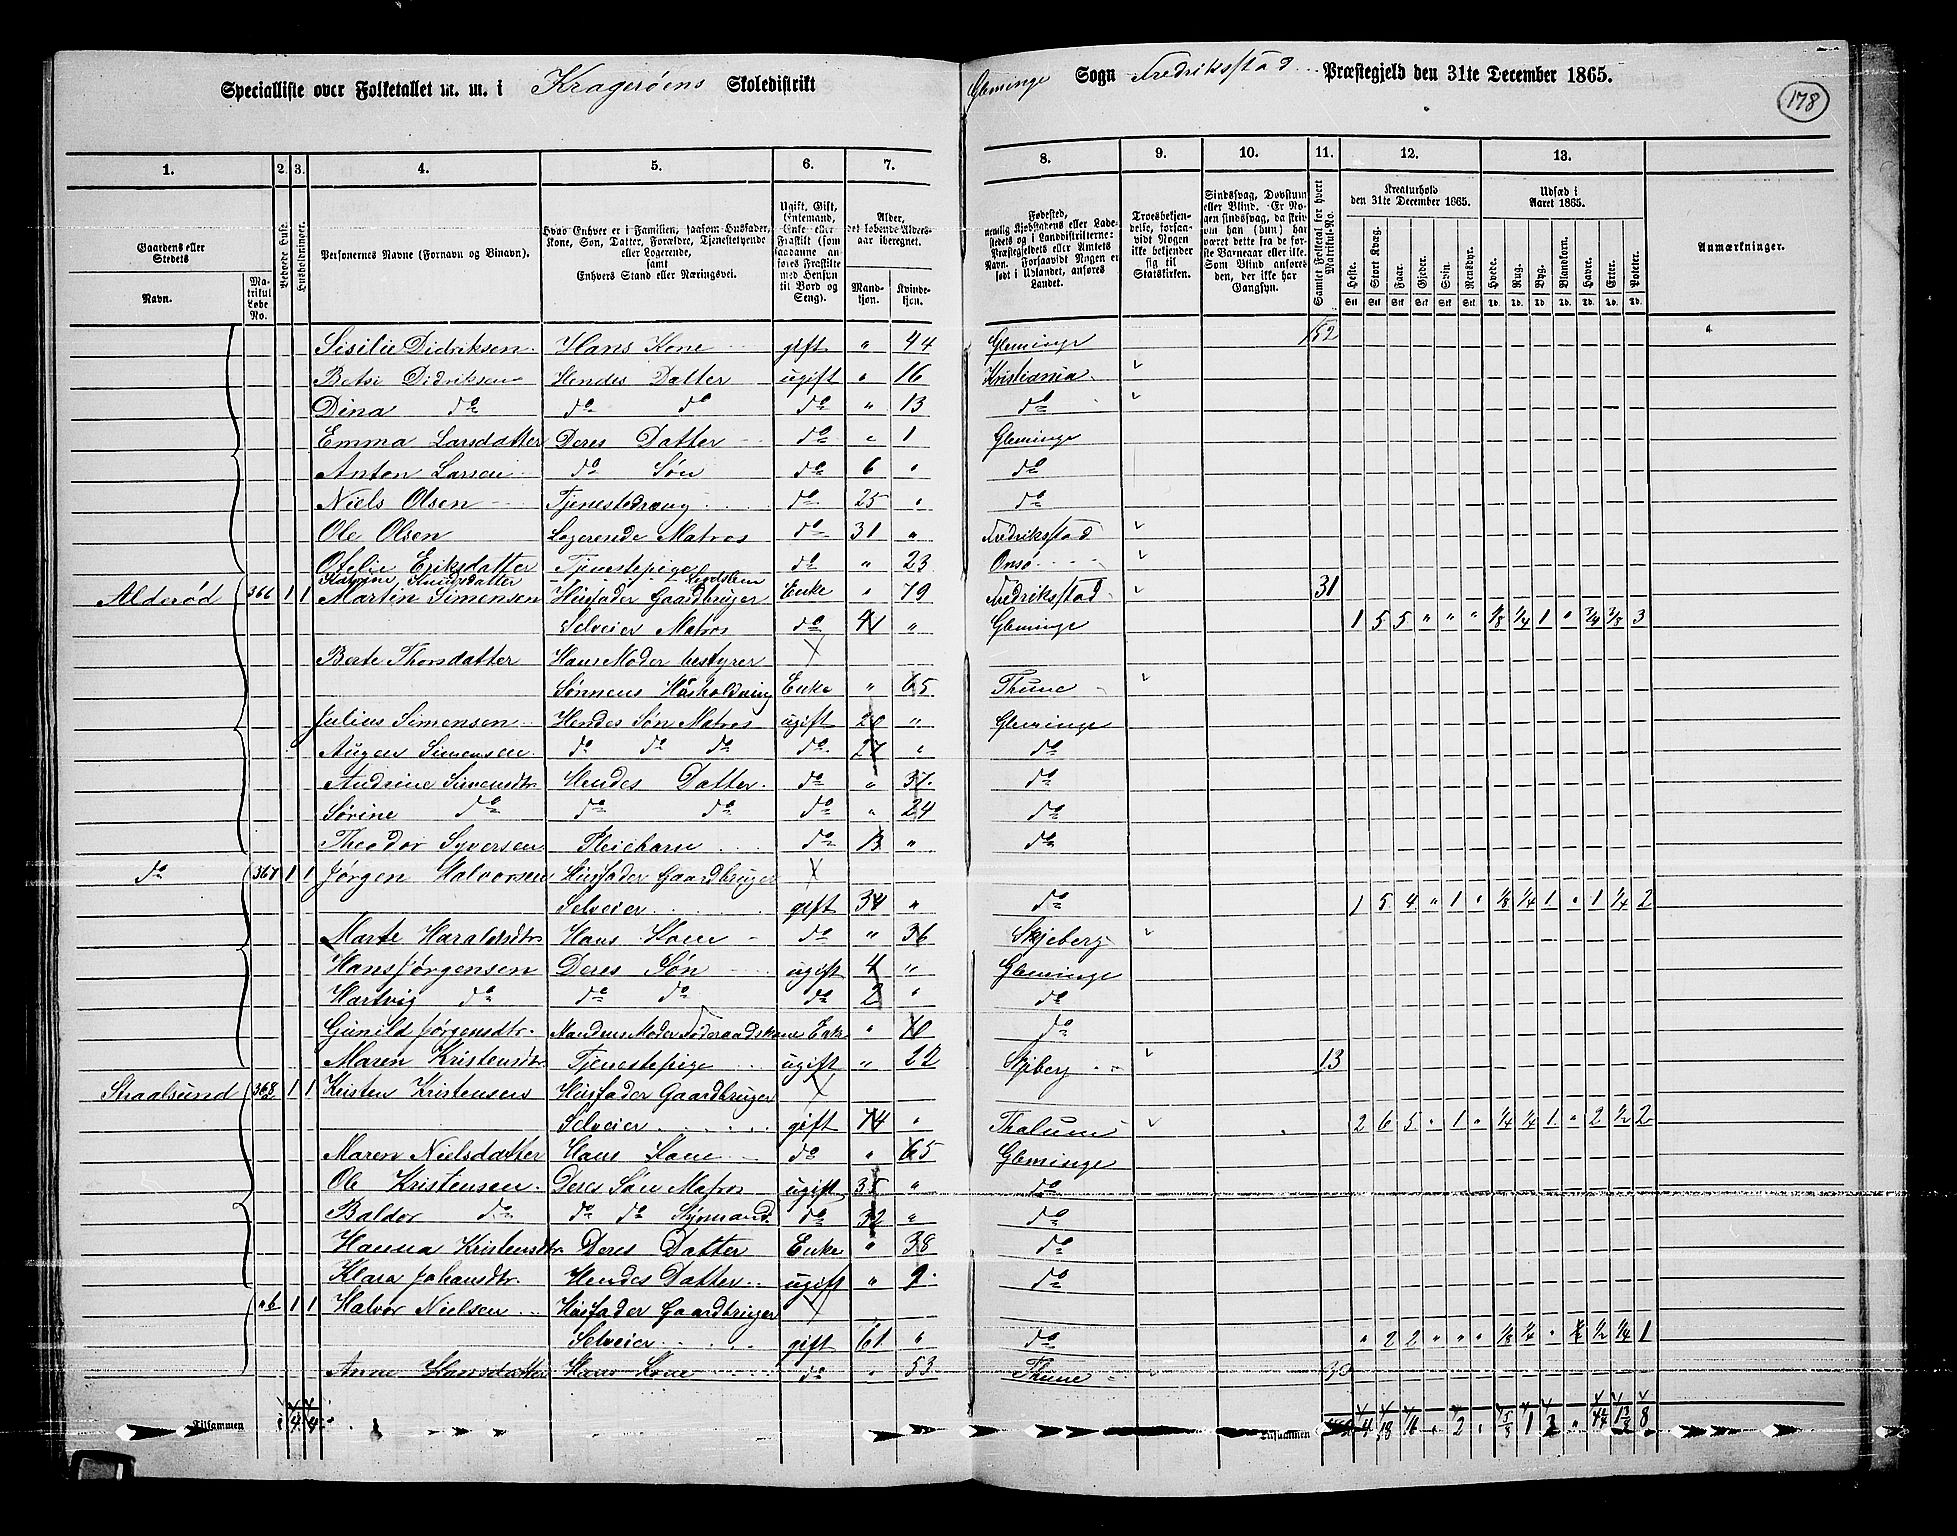 Specialliste over Folketallet m. m. i Kragerøens Skoledistrikt Glemminge Sogn Fredriksstad Præstegjeld den 31te December 1865.
178
1. 2. 3. 4. 5. 6. 7. 8. 9. 10. 11. 12. 13.
Gaardens eller Stedets Navn. Matrikul Løbe No. Beboede Huse. Husholdninger. Personernes Navne (Fornavn og Binavn). Hvad Enhver er i Familien, saasom Husfader, Kone, Søn, Datter, Forældre, Tjenestetyende eller Logerende, samt Enhvers Stand eller Næringsvei. Ugift, Gift, Enkemand, Enke eller Fraskilt (som saadanne anføres Fraskilte med Hensyn til Bord og Seng). Alder, det løbende Aldersaar iberegnet. Mandkjøn. Kvindekjøn. Fødested, nemlig Kjøbstadens eller Ladestedets og i Landdistrikterne: Præstegjeldets eller Amtets Navn. Forsaavidt Nogen er født i Udlandet, anføres Landet. Troesbekjendelse, forsaavidt Nogen ikke bekjender sig til Statskirken. Sindssvag, Døvstum eller Blind. Samlet Folketal for hvert Matrikul-No. Kreaturhold den 31te December 1865. Udsæd i Aaret 1865. Anmærkninger.
Heste. Stort Kvæg. Faar. Gjeder. Svin. Rensdyr. Hvede. Rug. Byg. Blandkorn. Havre. Erter. Poteter.
Sisilie Didriksen Hans Kone gift " 44 Glemminge 152
Betsi Didriksen Hendes Datter ugift " 16 Kristiania
Dina do do do do " 13 do
Emma Larsdatter Deres Datter do " 1 Glemminge
Anton Larsen do Søn do 6 " do
Niels Olsen Tjenestedreng do 25 " do
Ole Olsen Logerende Matros do 31 " Fredriksstad
Otelie Eriksdatter Tjenestepige do " 23 Onsø
Alderød 366 1 1 Martin Simensen Husfader Gaardbruger Enke " 79 Fredriksstad 31
Selveier Matros do 41 " Glemminge 1 5 5 " " " 1/8 1/4 1 " 3/4 3/8 3
Berte Thorsdatter Hans Moder bestyrer
Sønnens Husholdning Enke " 65 Thune
Julius Simensen Hendes Søn Matros ugift 20 " Glemminge
August Simensen do do do do 27 " do
Andrine Simensdtr Hendes Datter do " 31 do
Sørine do do do do " 24 do
Theodor Syversen Pleiebarn do 13 " do
do 367 1 1 Jørgen Halvorsen Husfader Gaardbruger
Selveier gift 34 " do 1 5 4 " 1 " 1/8 1/4 1 " 1 1/4 2
Marte Haraldsdtr Hans Kone do " 36 Skjeberg
Hans Jørgensen Deres Søn ugift 4 " Glemminge
Hartvig do do do do 2 " do
Gunild Jørgensdtr. Mandens Moder Føderaadskone Enke " 70 do
Maren Kristensdtr Tjenestepige ugift " 22 Skjeberg 13
Straalsund 368 1 1 Kristen Kristensen Husfader Gaardbruger
Selveier gift 74 " 2 6 5 " 1 " 1/4 1/4 1 " 2 1/2 2
Maren Nielsdatter Hans Kone do " 65 Glemminge
Ole Kristensen Deres Søn Matros ugift 35 " do
Baldor do do do Styrmand do 32 " do
Hanna Kristensdtr Deres Datter Enke " 38 do
Klara Johansdtr. Hendes Datter ugift " 9 do
" 6 1 1 Halvor Nielsen Husfader Gaardbruger
Selveier gift 61 " do " 2 2 " " " 1/8 1/4 " 1/2 1/4 1
Anne Hansdatter Hans Kone do " 53 Thune 30
Tilsammen 4 4 Tilsammen 4 18 16 " 2 " 5/8 1 3 " 8